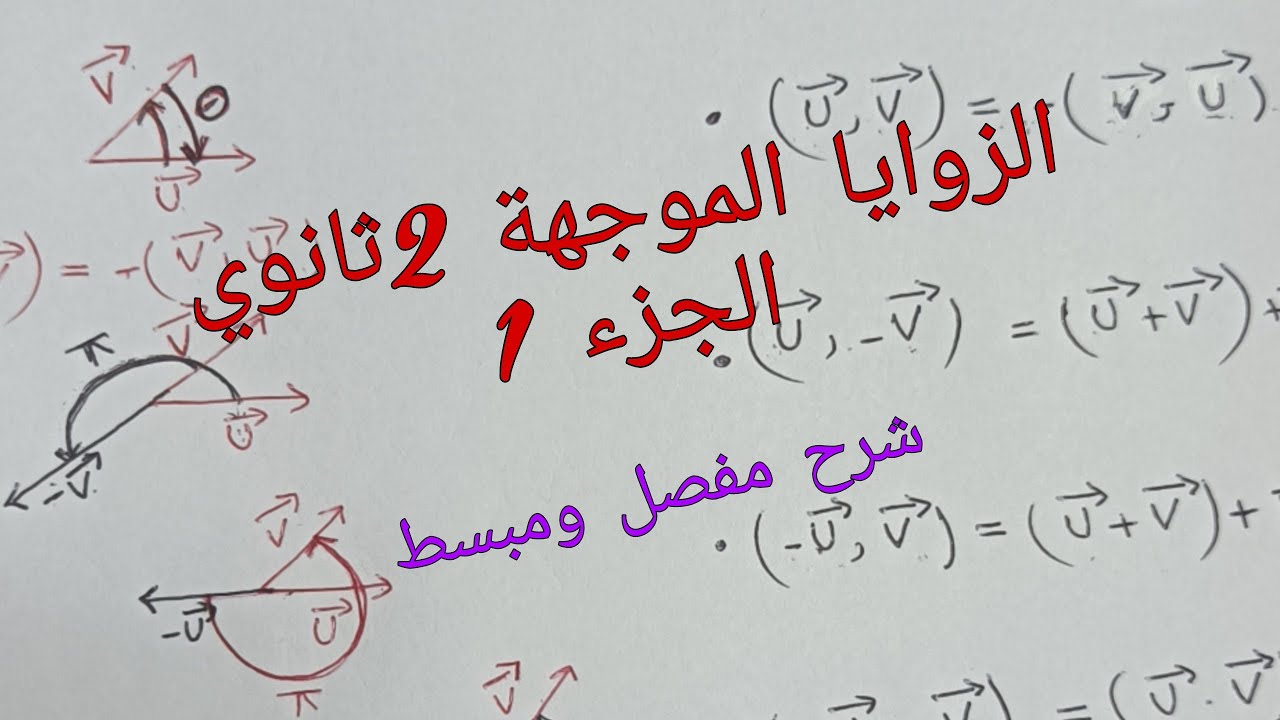 الزوايا الموجهة 2ثانوي
الجزء 1
شرح مفصل ومبسط
V⃗
θ
U⃗
• (U⃗, V⃗) = -(V⃗, U⃗)
V⃗) = -(V⃗, U⃗
π
V⃗
U⃗
-V⃗
• (U⃗, -V⃗) = (U⃗+V⃗)+
V⃗
-U⃗
U⃗
π
• (-U⃗, V⃗) = (U⃗+V⃗)+
V⃗
V⃗) = (U⃗. V⃗